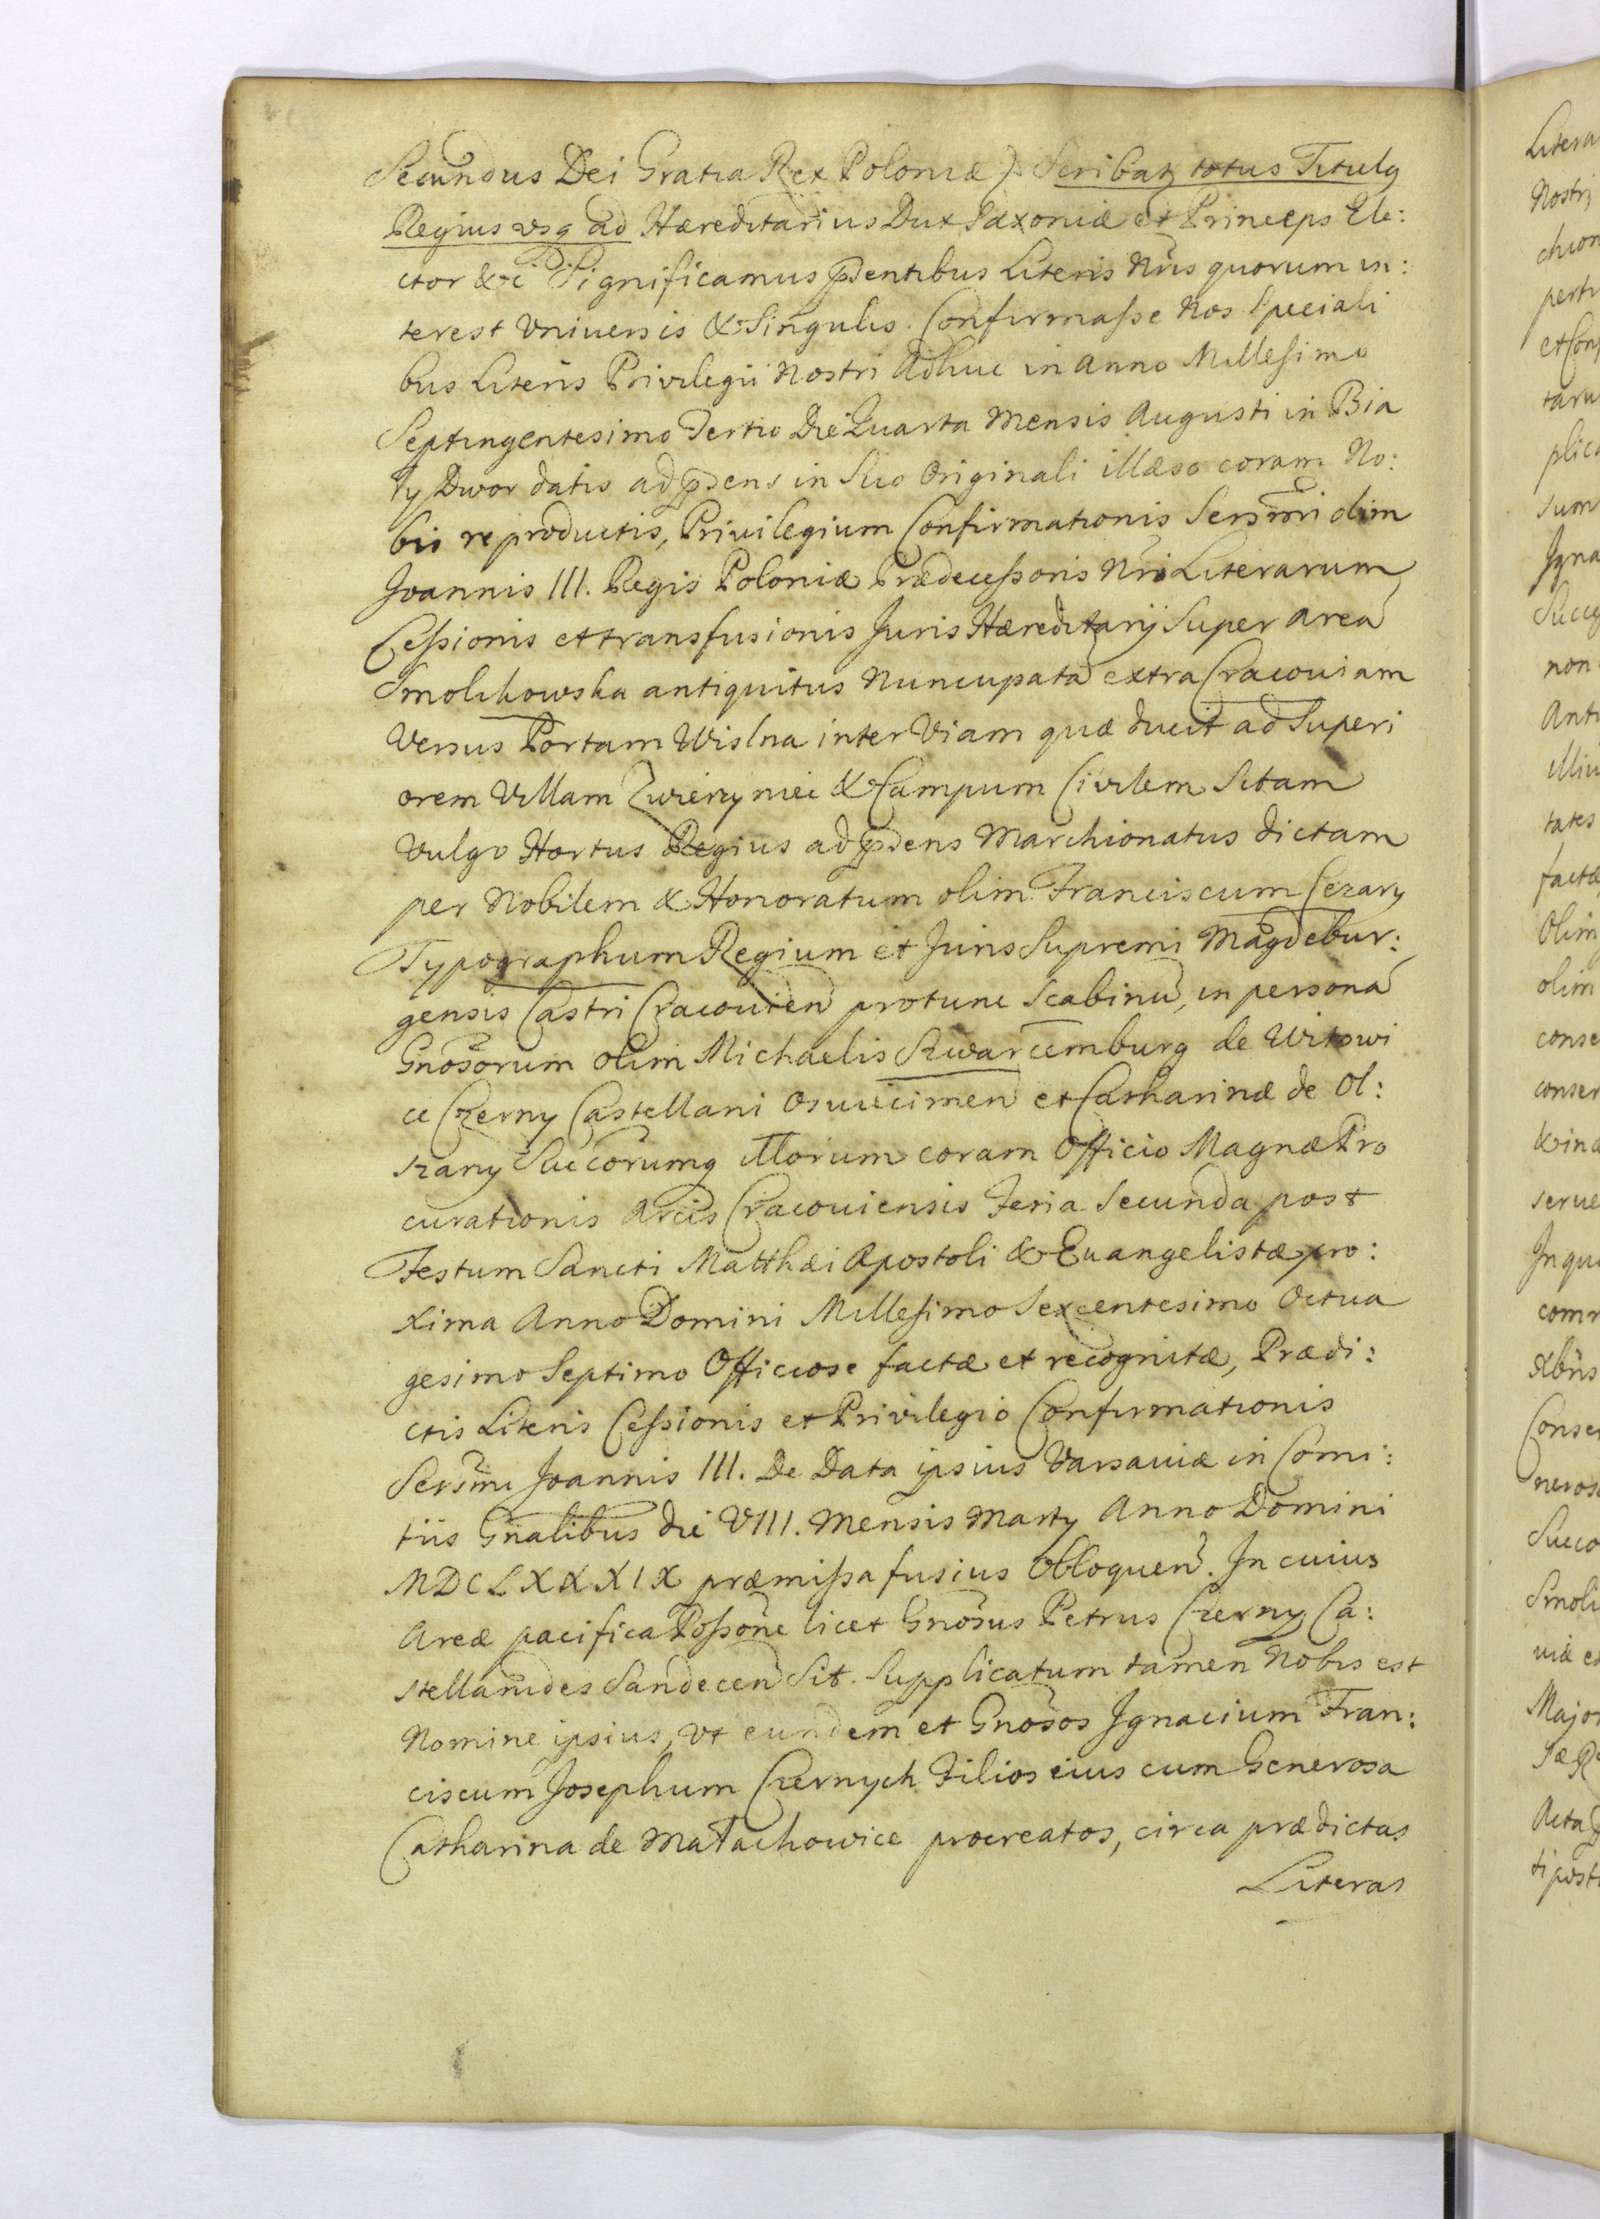 Secundus Dei Gratia Rex Poloniæ) Scribatz totus Titulg
Regius vsq ad Hæreditarius Dux Saxoniæ et Princeps Ele:
ctor &c Significamus pñsentibus Literis Nris quorum in:
terest Vniuersis & Singulis. Confirmasse Nos Speciali
bus Literis Privilegii Nostri Adhuc in Anno Millesimo
Septingentesimo Tertio Die Quarta Mensis Augusti in Bia
ły Dwor datis ad pñsens in Suo Originali illæso coram No:
bis reproductis, Priuilegium Confirmationis Sersmi olim
Joannis III. Regis Poloniæ Prædecessoris Nri Literarum
Cessionis et transfusionis Juris Hæreditarij Super Area
Smolikowska antiquitus Nuncupata extra Cracouiam
Versus Portam Wislna inter Viam quæ ducit ad Superi
orem Villam Zwierzyniec & Campum Civilem Sitam
Vulgo Hortus Regius ad pñsens Marchionatus dictam
per Nobilem & Honoratum olim Franciscum Cezary
Typographum Regium et Juris Supremi Magdebur:
gensis Castri Cracouien protunc Scabinū, in persona
Gnosorum olim Michaelis Szwarcemburg de Witowi
ce Czerny Castellani Osuiecimen et Catharinæ de Ol:
szany Succorumq Illorum coram Officio Magnæ Pro
curationis Arcis Cracouiensis Feria Secunda post
Festum Sancti Matthæi Apostoli & Euangelistæ pro:
xima Anno Domini Millesimo Sexcentesimo Octua
gesimo Septimo Officiose factæ et recognitæ, Prædi:
ctis Literis Cessionis et Privilegio Confirmationis
Sersmi Joannis III. De Data ipsius Varsauiæ in Comi:
tiis Gnalibus die VIII. Mensis Marty Anno Domini
MDCLXXXIX præmissa fusius Obloquen. In cuius
Areæ pacifica Possone licet Gnosus Petrus Czerny Ca:
stellanides Sandecen Sit. Supplicatum tamen Nobis est
Nomine ipsius, Vt eundem et Gnosos Jgnacium Fran:
ciscum Josephum Czernych Filios eius cum Generosa
Catharina de Małachowice procreatos, circa prædictas
Literas